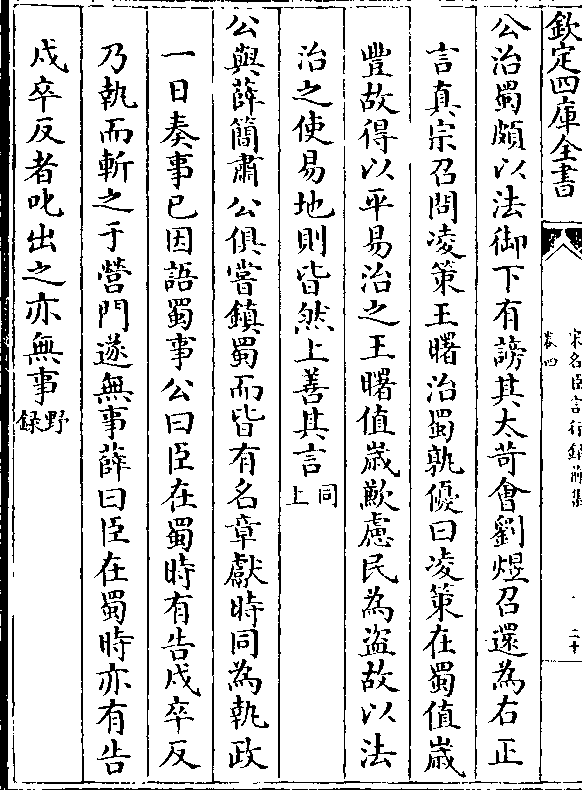 欽定四庫全書
宋名臣言行錄前集
卷四
二十
公治蜀頗以法御下有謗其太苛會劉煜召還為右正
言真宗召問凌策王曙治蜀孰優曰凌策在蜀值嵗
豐故得以平易治之王曙值嵗歉慮民為盜故以法
治之使易地則皆然上善其言同上
公與薛簡肅公俱嘗鎮蜀而皆有名章獻時同為執政
一日奏事已因語蜀事公曰臣在蜀時有告戍卒反
乃執而斬之于營門遂無事薛曰臣在蜀時亦有告
戍卒反者叱出之亦無事野錄